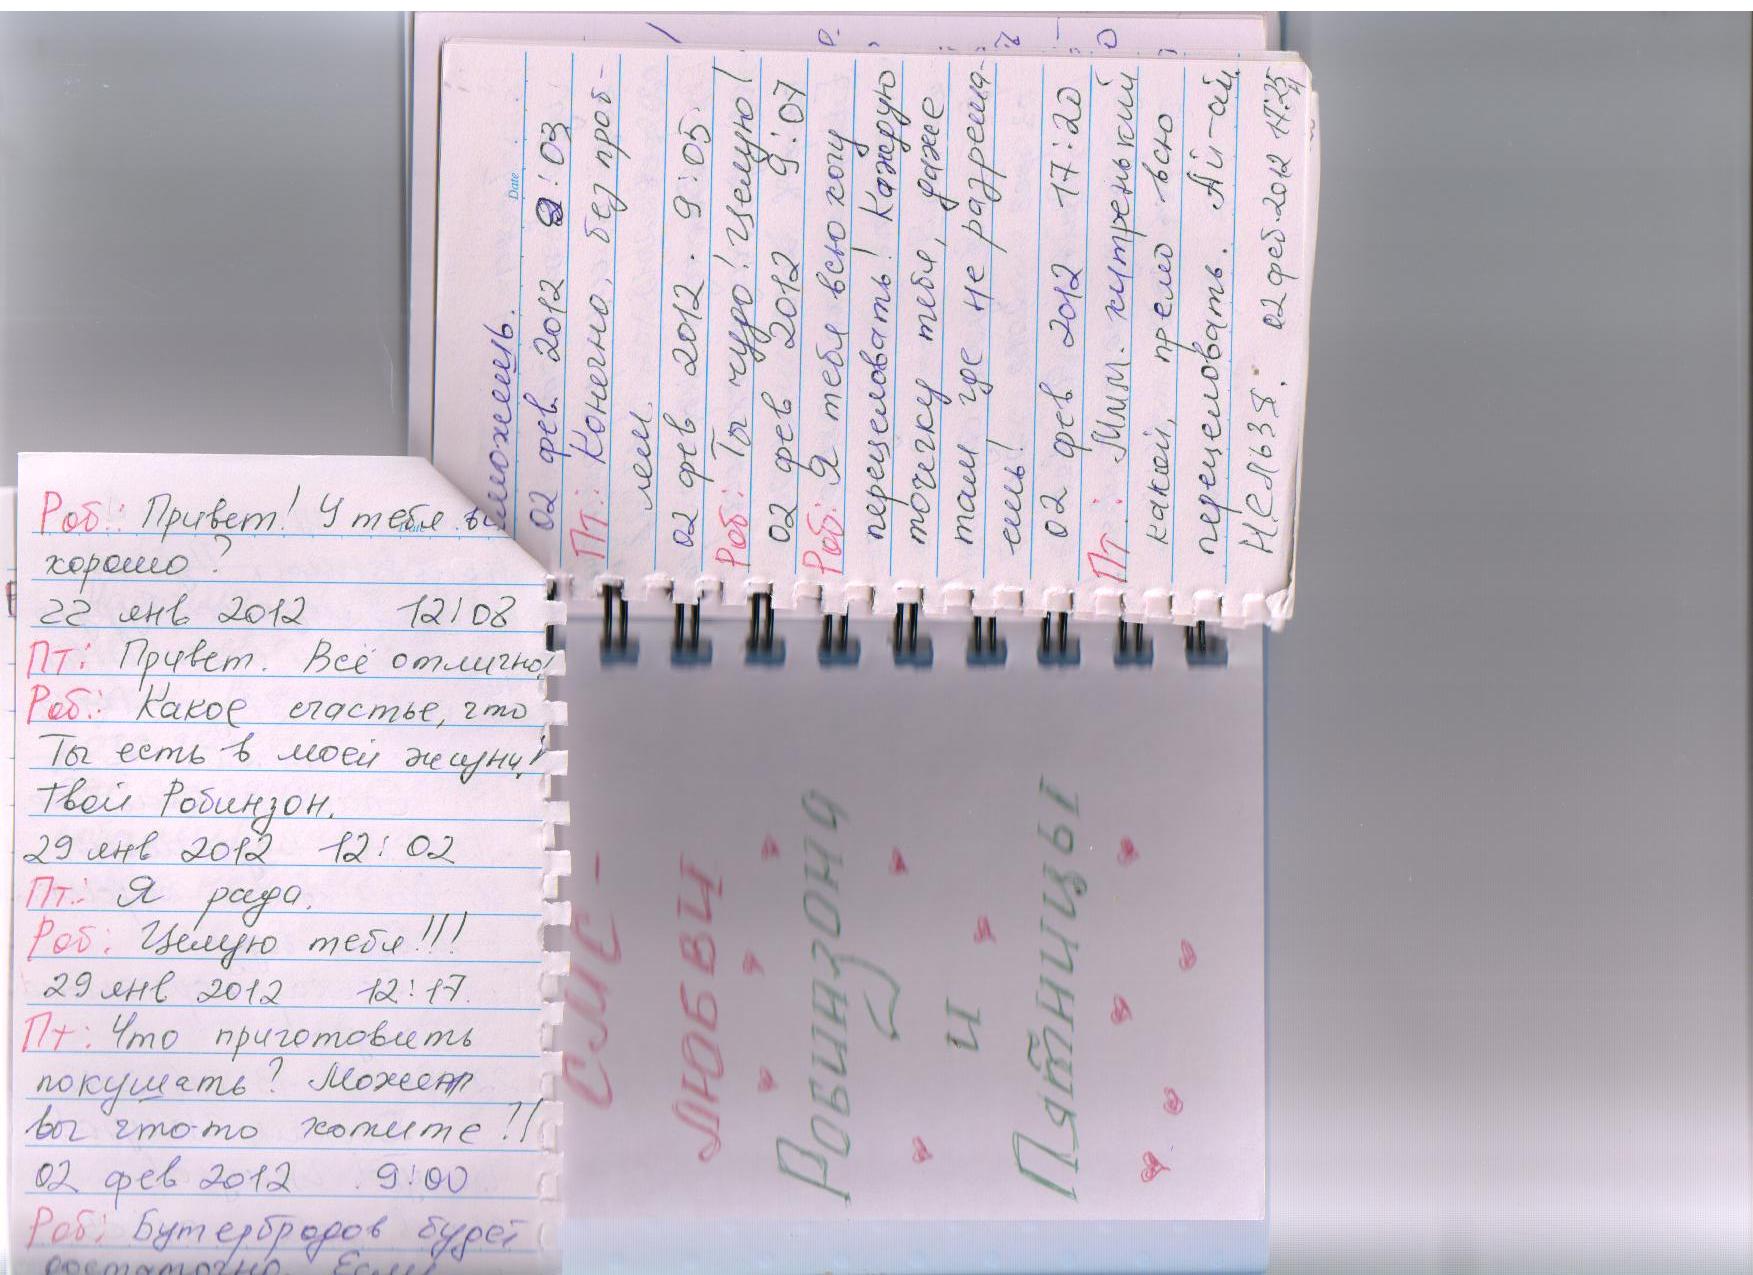 Роб: Привет! У тебя
хорошо?
22 янв 2012 12:08
Пт: Привет. Всё отлично!
Роб: Какое счастье, что
Ты есть в моей жизни!
Твой Робинзон.
29 янв 2012 12:02
Пт: Я рада.
Роб: Целую тебя!!!
29 янв 2012 12:17
Пт: Что приготовить
покушать? Может
вы что-то хотите?!!
02 фев 2012 9:00
Роб: Бутербродов будет
достаточно. Если
сможешь.
Date
02 фев. 2012 9:03
Пт: Конечно, без проб-
лем.
02 фев 2012. 9:05.
Роб: Ты чудо! Целую!
02 фев 2012 9:07
Роб: Я тебя всю хочу
перецеловать! Каждую
точечку тебя, даже
там где не разреша-
ешь!
02 фев 2012 17:20
Пт: Ммм. хитренький
какой, прямо всю
перецеловать. Ай-ай.
НЕЛЬЗЯ. 02 фев. 2012 17:25
СМС -
ЛЮБВИ
Робинзона
и
Пятницы